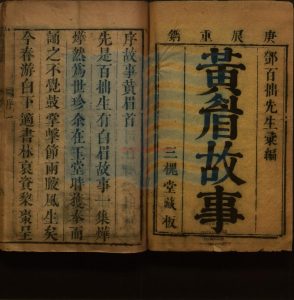 庚辰重鐫
鄧百拙先生彙編
黃眉故事
三槐堂藏板
序故事黃眉首
先是百拙生有白眉故事一集燁
燁然為世珍余在玉堂時獲奉而
誦之不覺鼓掌擊節兩腋風生矣
今春游白下適書林袁資棃棗呈